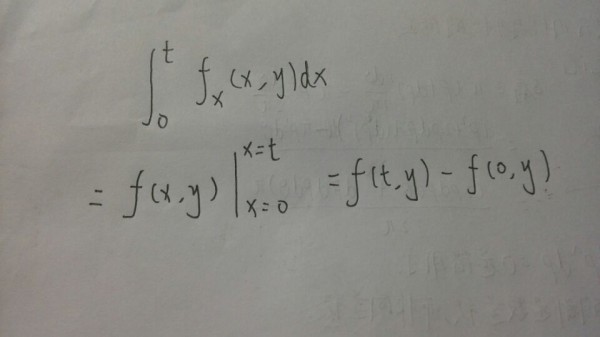 ∫₀ᵗ fₓ(x,y)dx
= f(x,y) |ₓ₌₀ˣ⁼ᵗ = f(t,y) - f(0,y)